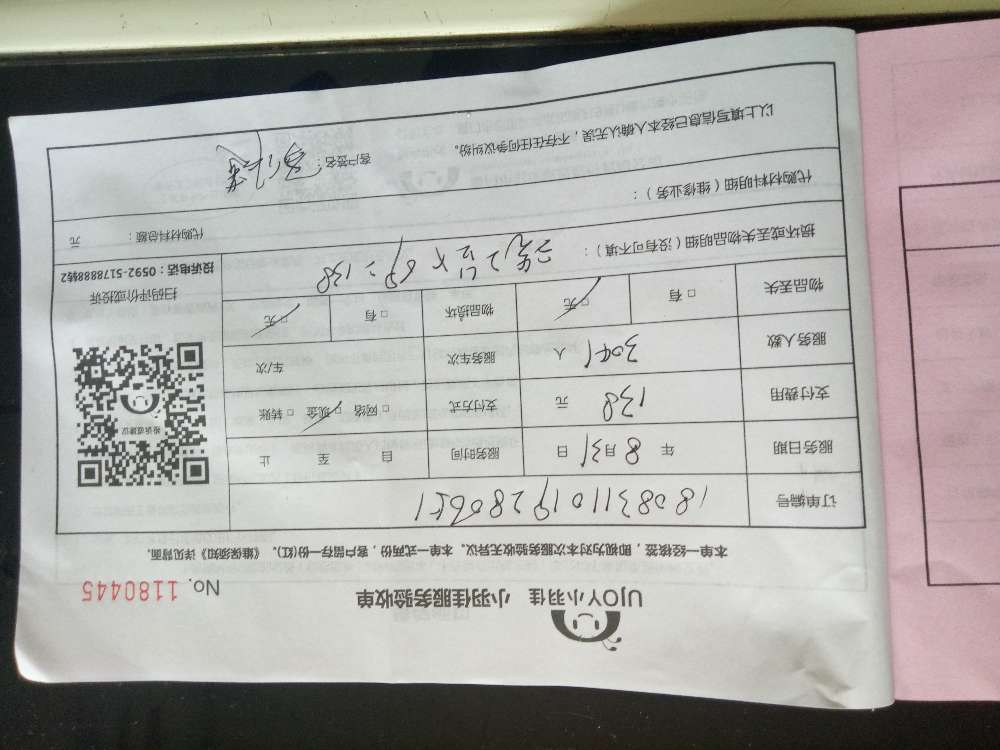 UJOY小羽佳 小羽佳服务验收单
No. 1180445
本单一经接签,即视为对本次服务验收无异议。本单一式两份,客户留存一份(红)。《维保须知》详见背面。
订单编号 1808311019280651
服务日期 年 8月31日 服务时间 自 至 止
支付费用 138 元 支付方式 □网络 □现金 □转账
服务人数 3041 人 服务车次 车/次
物品丢失 □有 □无 物品损坏 □有 □无
投诉或建议
扫码评价或投诉
投诉电话:0592-5178888转2
损坏或丢失物品明细(没有可不填):
X 69 = 138
代购材料明细(维修业务):
代购材料总额: 元
以上填写信息已经本人确认无误,不存在任何争议纠纷。
客户签名: